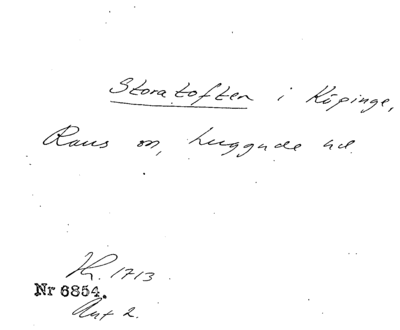 Storatoften i Köpinge,
Raus sn, Luggude hd.
Hr. 1713.
Nr 6854.
Ant 2.